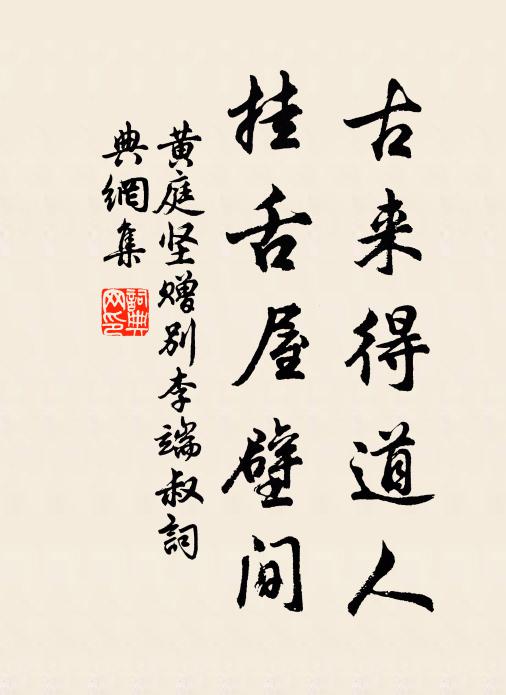 古来得道人
挂舌屋壁间
黄庭坚赠别李端叔詞
典網集
詞典
网印